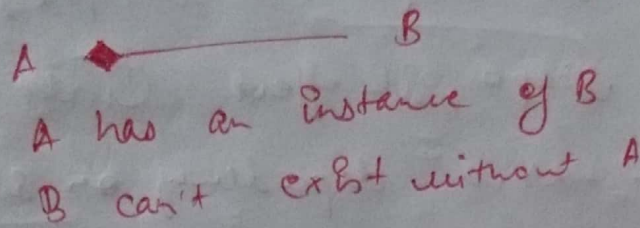 A B
A has an instance of B
B can't exist without A